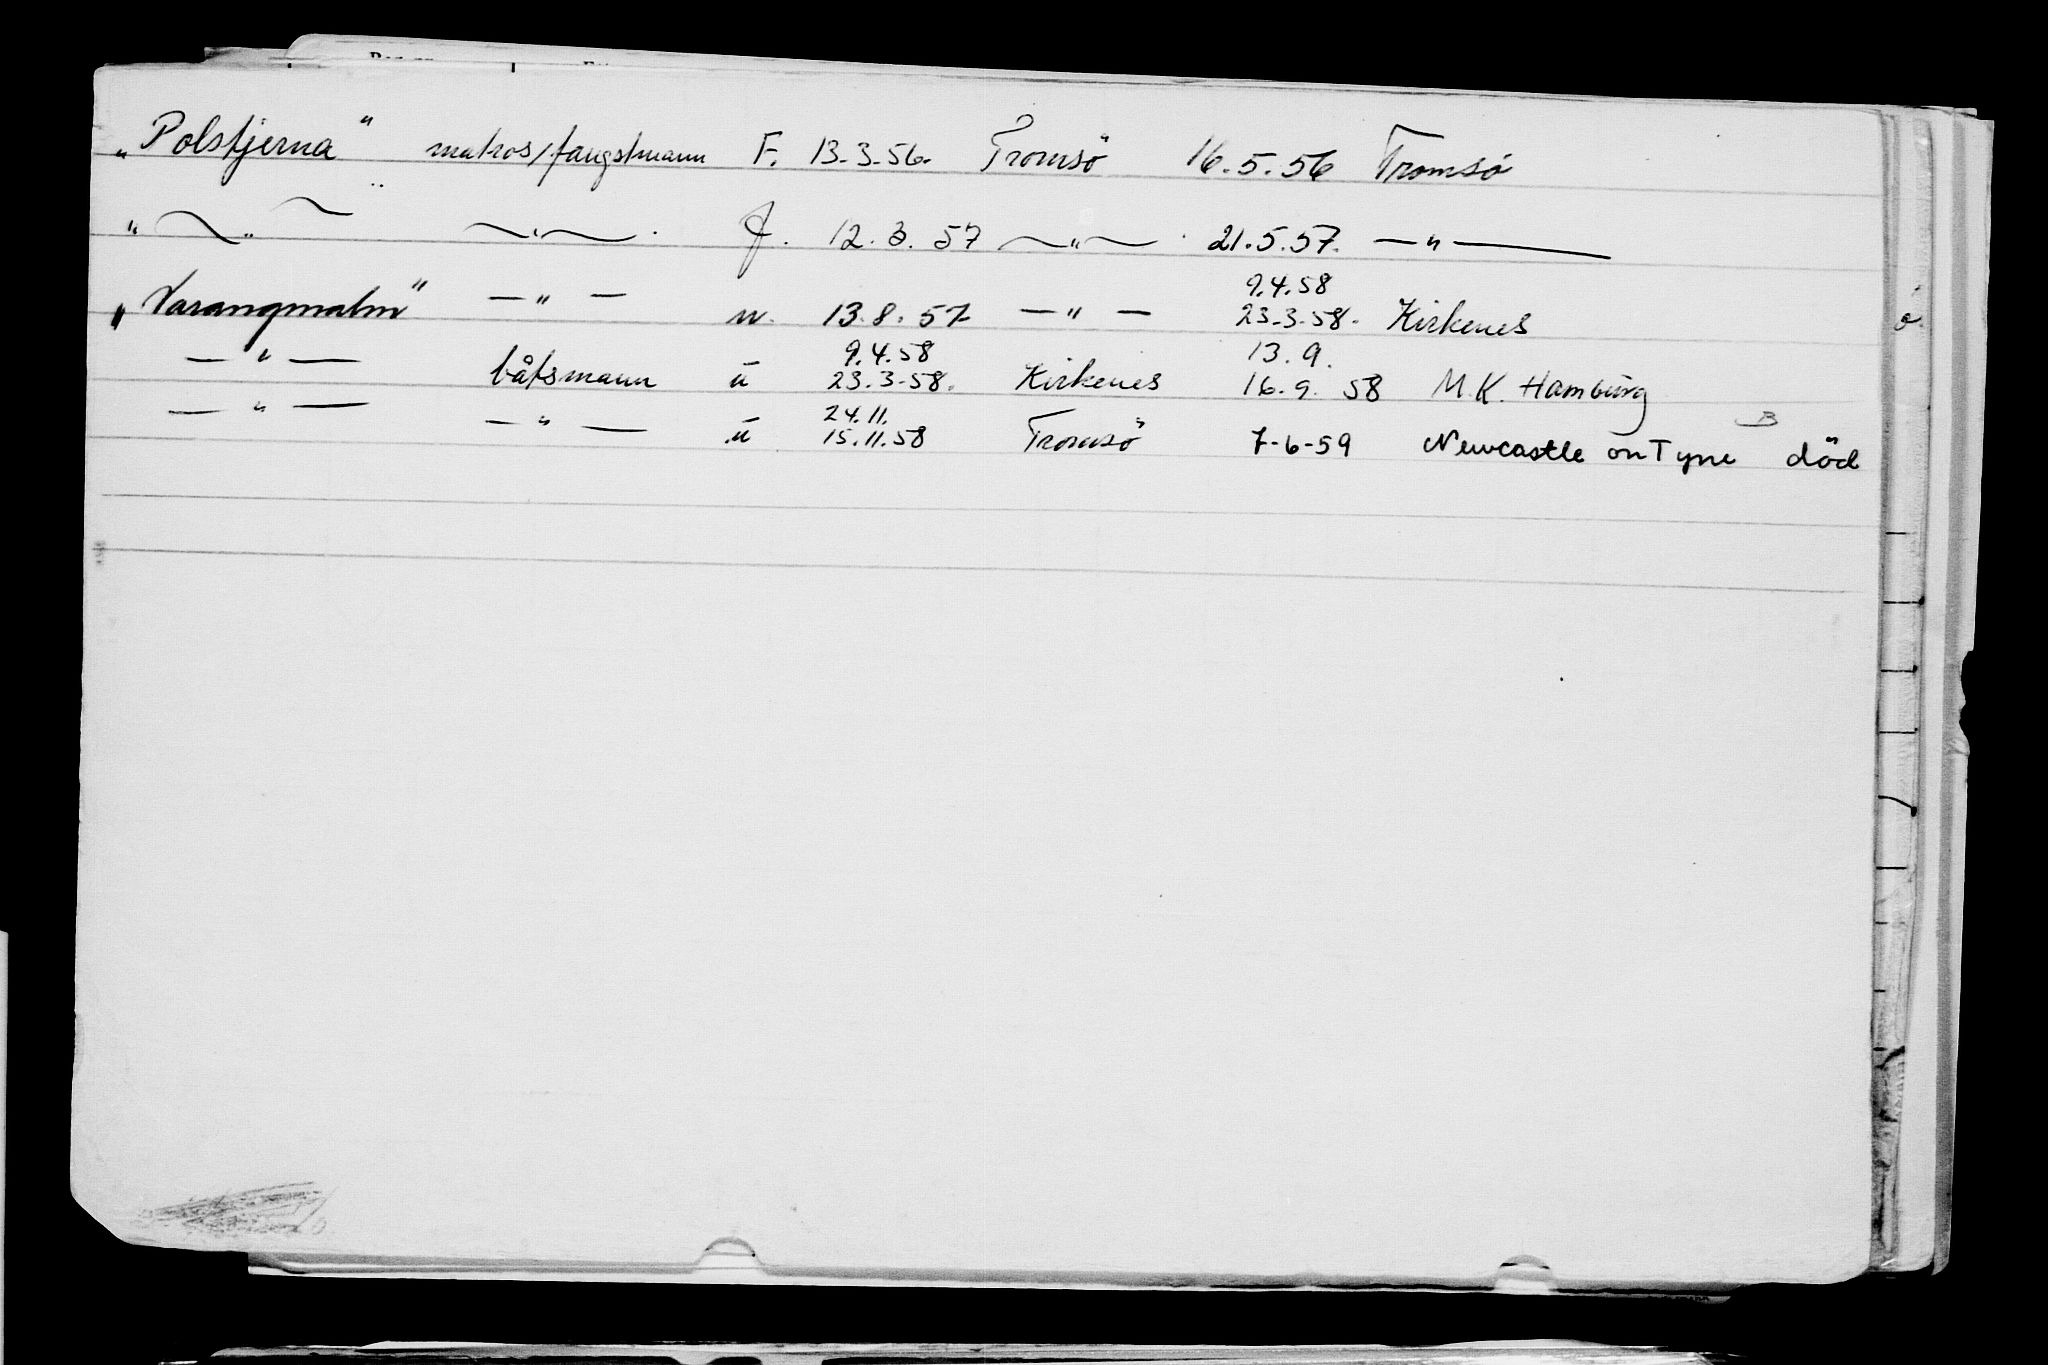 „Polstjerna" matros/fangstmann F. 13-3-56. Tromsö 16.5.56 Tromsö
" — " — — " — f. 12.3.57 — " — 21.5.57. — " —
9.4.58
„Varangmalm" — " — u. 13.8.57 — " — 23-3-58. Kirkenes
9.4.58 13.9.
— " — båtsmann u 23.3-58. Kirkenes 16.9.58 M.K. Hamburg
24.11. B
— " — — " — u 15.11.58 Tromsö 7-6-59 Newcastle on Tyne död